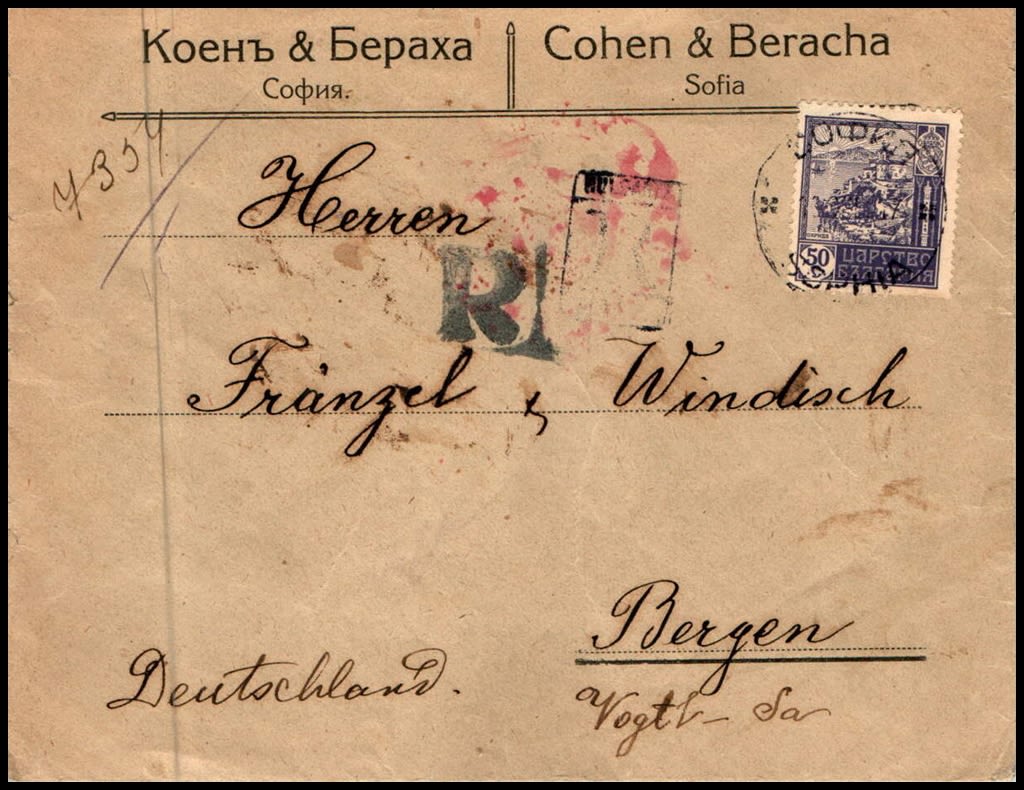 Коенъ & Бераха
София.
Cohen & Beracha
Sofia
7357
СОФИЯ
50
ЦАРСТВО
БЪЛГАРИЯ
SOPHIA
Herren
R
Fränzel & Windisch
Bergen
Deutschland.
Vogtl – Sa